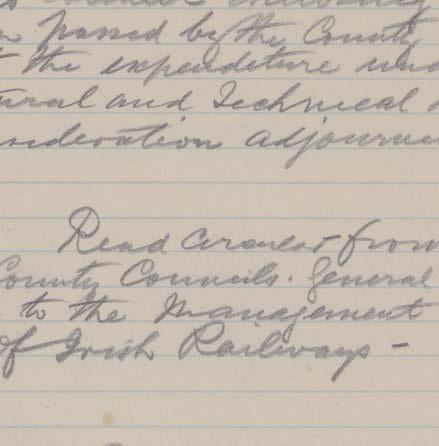 passed by the County
the expenditure und
ural and Technical
nsideration adjourne
Read Circular from
County Councils. General
to the Management
of Irish Railways -